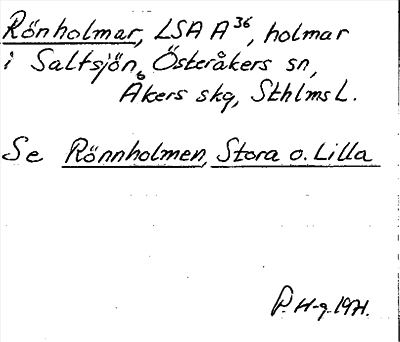 Rönholmar, LSA A³⁶, holmar
i Saltsjön, Österåkers sn,
Åkers skg, Sthlms L.
Se Rönnholmen, Stora o. Lilla
P. H-g. 1971.